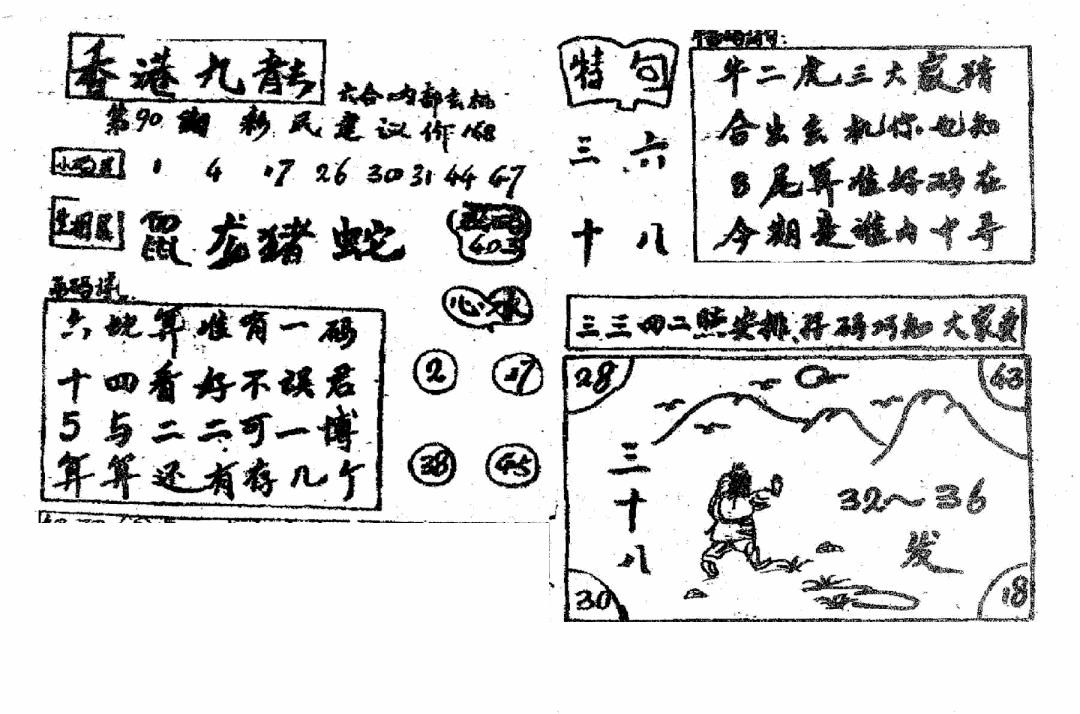 香港九龍
六合内部玄机
第90期 彩民建议价168
小码区 1 4 17 26 30 31 44 47
生肖区 鼠 龙 猪 蛇
403
六地算准有一码
十四看好不误君
5与二二可一博
算算还有存几个
心水
2 17
38 45
特句
三六
十八
牛二虎三大家猜
合出玄机你也知
8尾算准好码在
今期是谁内中寻
三三四二照安排 好码巧知大家爱
28 43
三十八
32～36
发
30 18